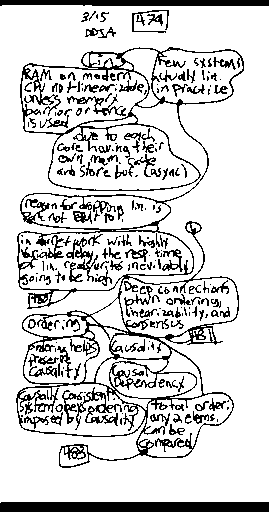 3/15
474
DDIA
Lin.
Few systems
actually lin.
in practice
RAM on modern
CPU not linearizable,
unless memory
barrier or fence
is used
due to each
core having their
own mem. cache
and store buf. (async)
reason for dropping lin. is
perf not fault tol.
in a network with highly
variable delay, the resp. time
of lin. reads/writes inevitably
going to be high
Deep connections
btwn ordering,
linearizability, and
consensus
481
Ordering
Causality
ordering helps
preserve
causality
Causal
Dependency
Causally Consistent:
System obeys ordering
imposed by Causality
Total order:
any 2 elems.
can be
compared
483